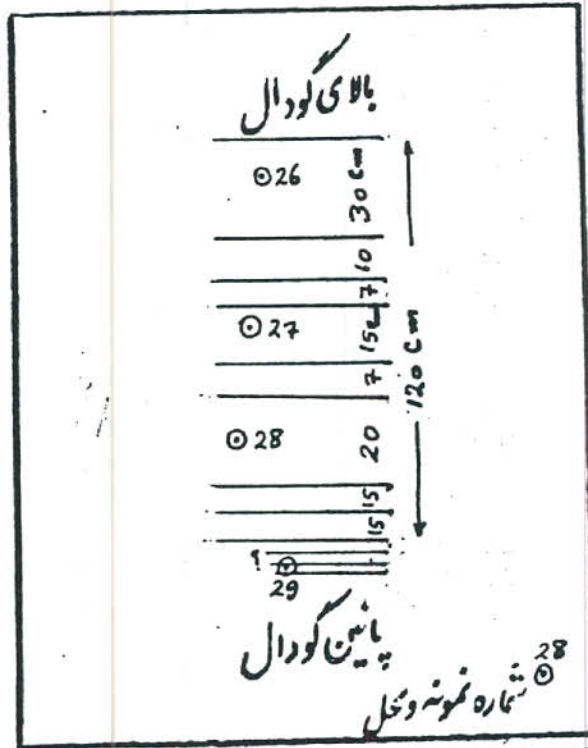 بالای گودال
26
30 cm
10
7
27
15
7
120 cm
28
20
15
15
؟
29
پائین گودال
28
شماره نمونه و محل